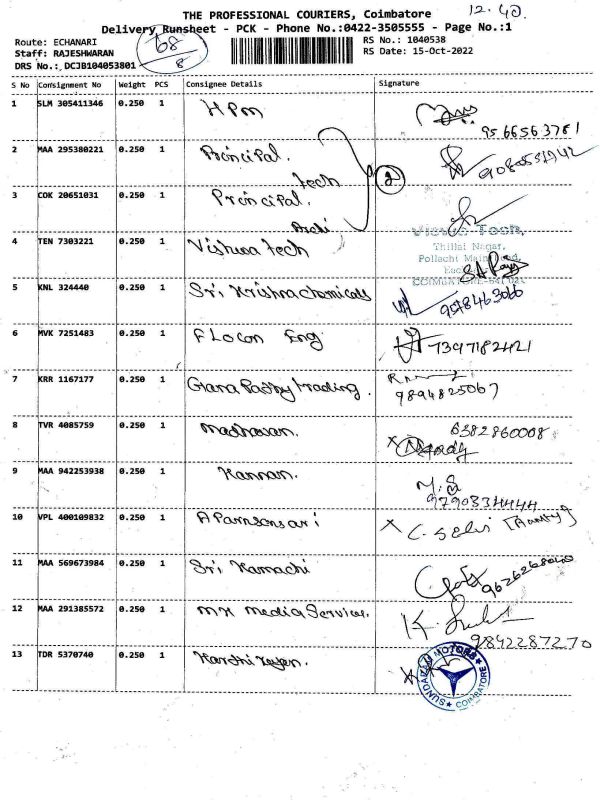 12.40
THE PROFESSIONAL COURIERS, Coimbatore
Delivery Runsheet - PCK - Phone No.:0422-3505555 - Page No.:1
Route: ECHANARI
RS No.: 1040538
Staff: RAJESHWARAN
RS Date: 15-Oct-2022
DRS No.: DCJB104053801
68
8
S No Consignment No Weight PCS Consignee Details Signature
1 SLM 305411346 0.250 1 HPM
9566563781
2 MAA 295380221 0.250 1 Principal.
tech
2
3 COK 20651031 0.250 1 Principal.
Archi
4 TEN 7303221 0.250 1 Vishwa tech
Tech,
Thillai Nagar,
Pollachi Main Road,
COIMBATORE-641 021
5 KNL 324440 0.250 1 Sri Krishna chemicals
9578463066
6 MVK 7251483 0.250 1 Flocon Eng
7397182421
7 KRR 1167177 0.250 1 Gana Pathy trading.
9894825067
8 TVR 4085759 0.250 1 Madhavan.
6382860008
9 MAA 942253938 0.250 1 Kannan.
M.S
9790334444
10 VPL 400109832 0.250 1
C. Selvi
11 MAA 569673984 0.250 1 Sri Kamachi
12 MAA 291385572 0.250 1 MK Media Services.
9842287270
13 TDR 5370740 0.250 1 Karthikeyan.
SUNDARAM MOTORS
COIMBATORE